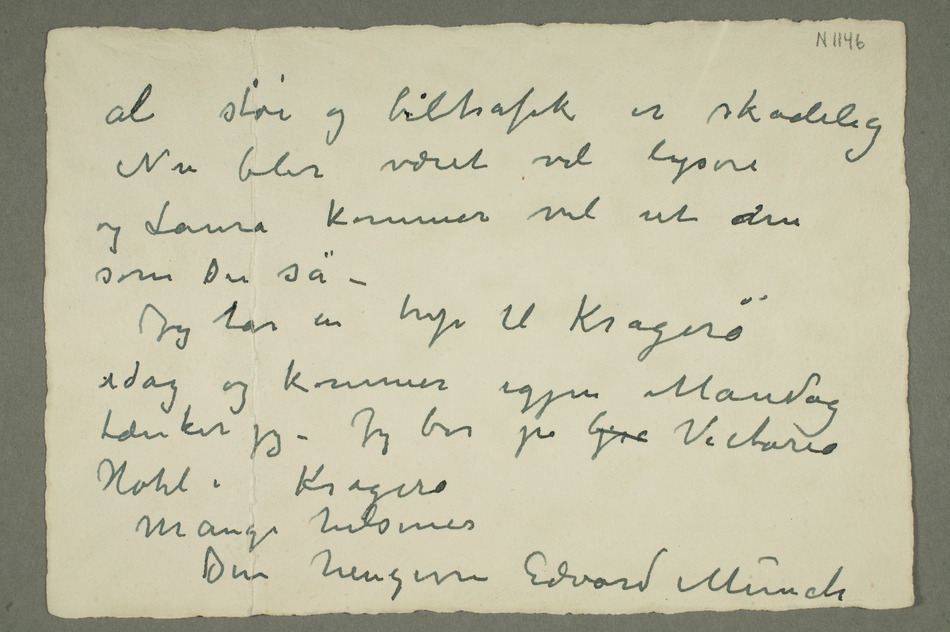 N 1146
al støi og biltrafik er skadelig
Nu blir været vel lysere
og Laura kommer vel ut
som Du sa –
Jeg tar en trip til Kragerö
idag og kommer igjen Mandag
tænker jeg – Jeg bor på Victoria
Hotel i Kragerø
Mange hilsener
Din hengivne Edvard Munch